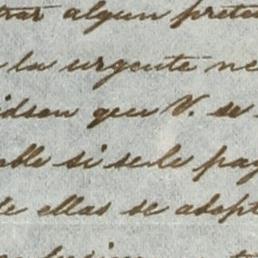 trar algun prete
la urgente ne
idson que V. se
ble si se le pag
de ellas se adopt